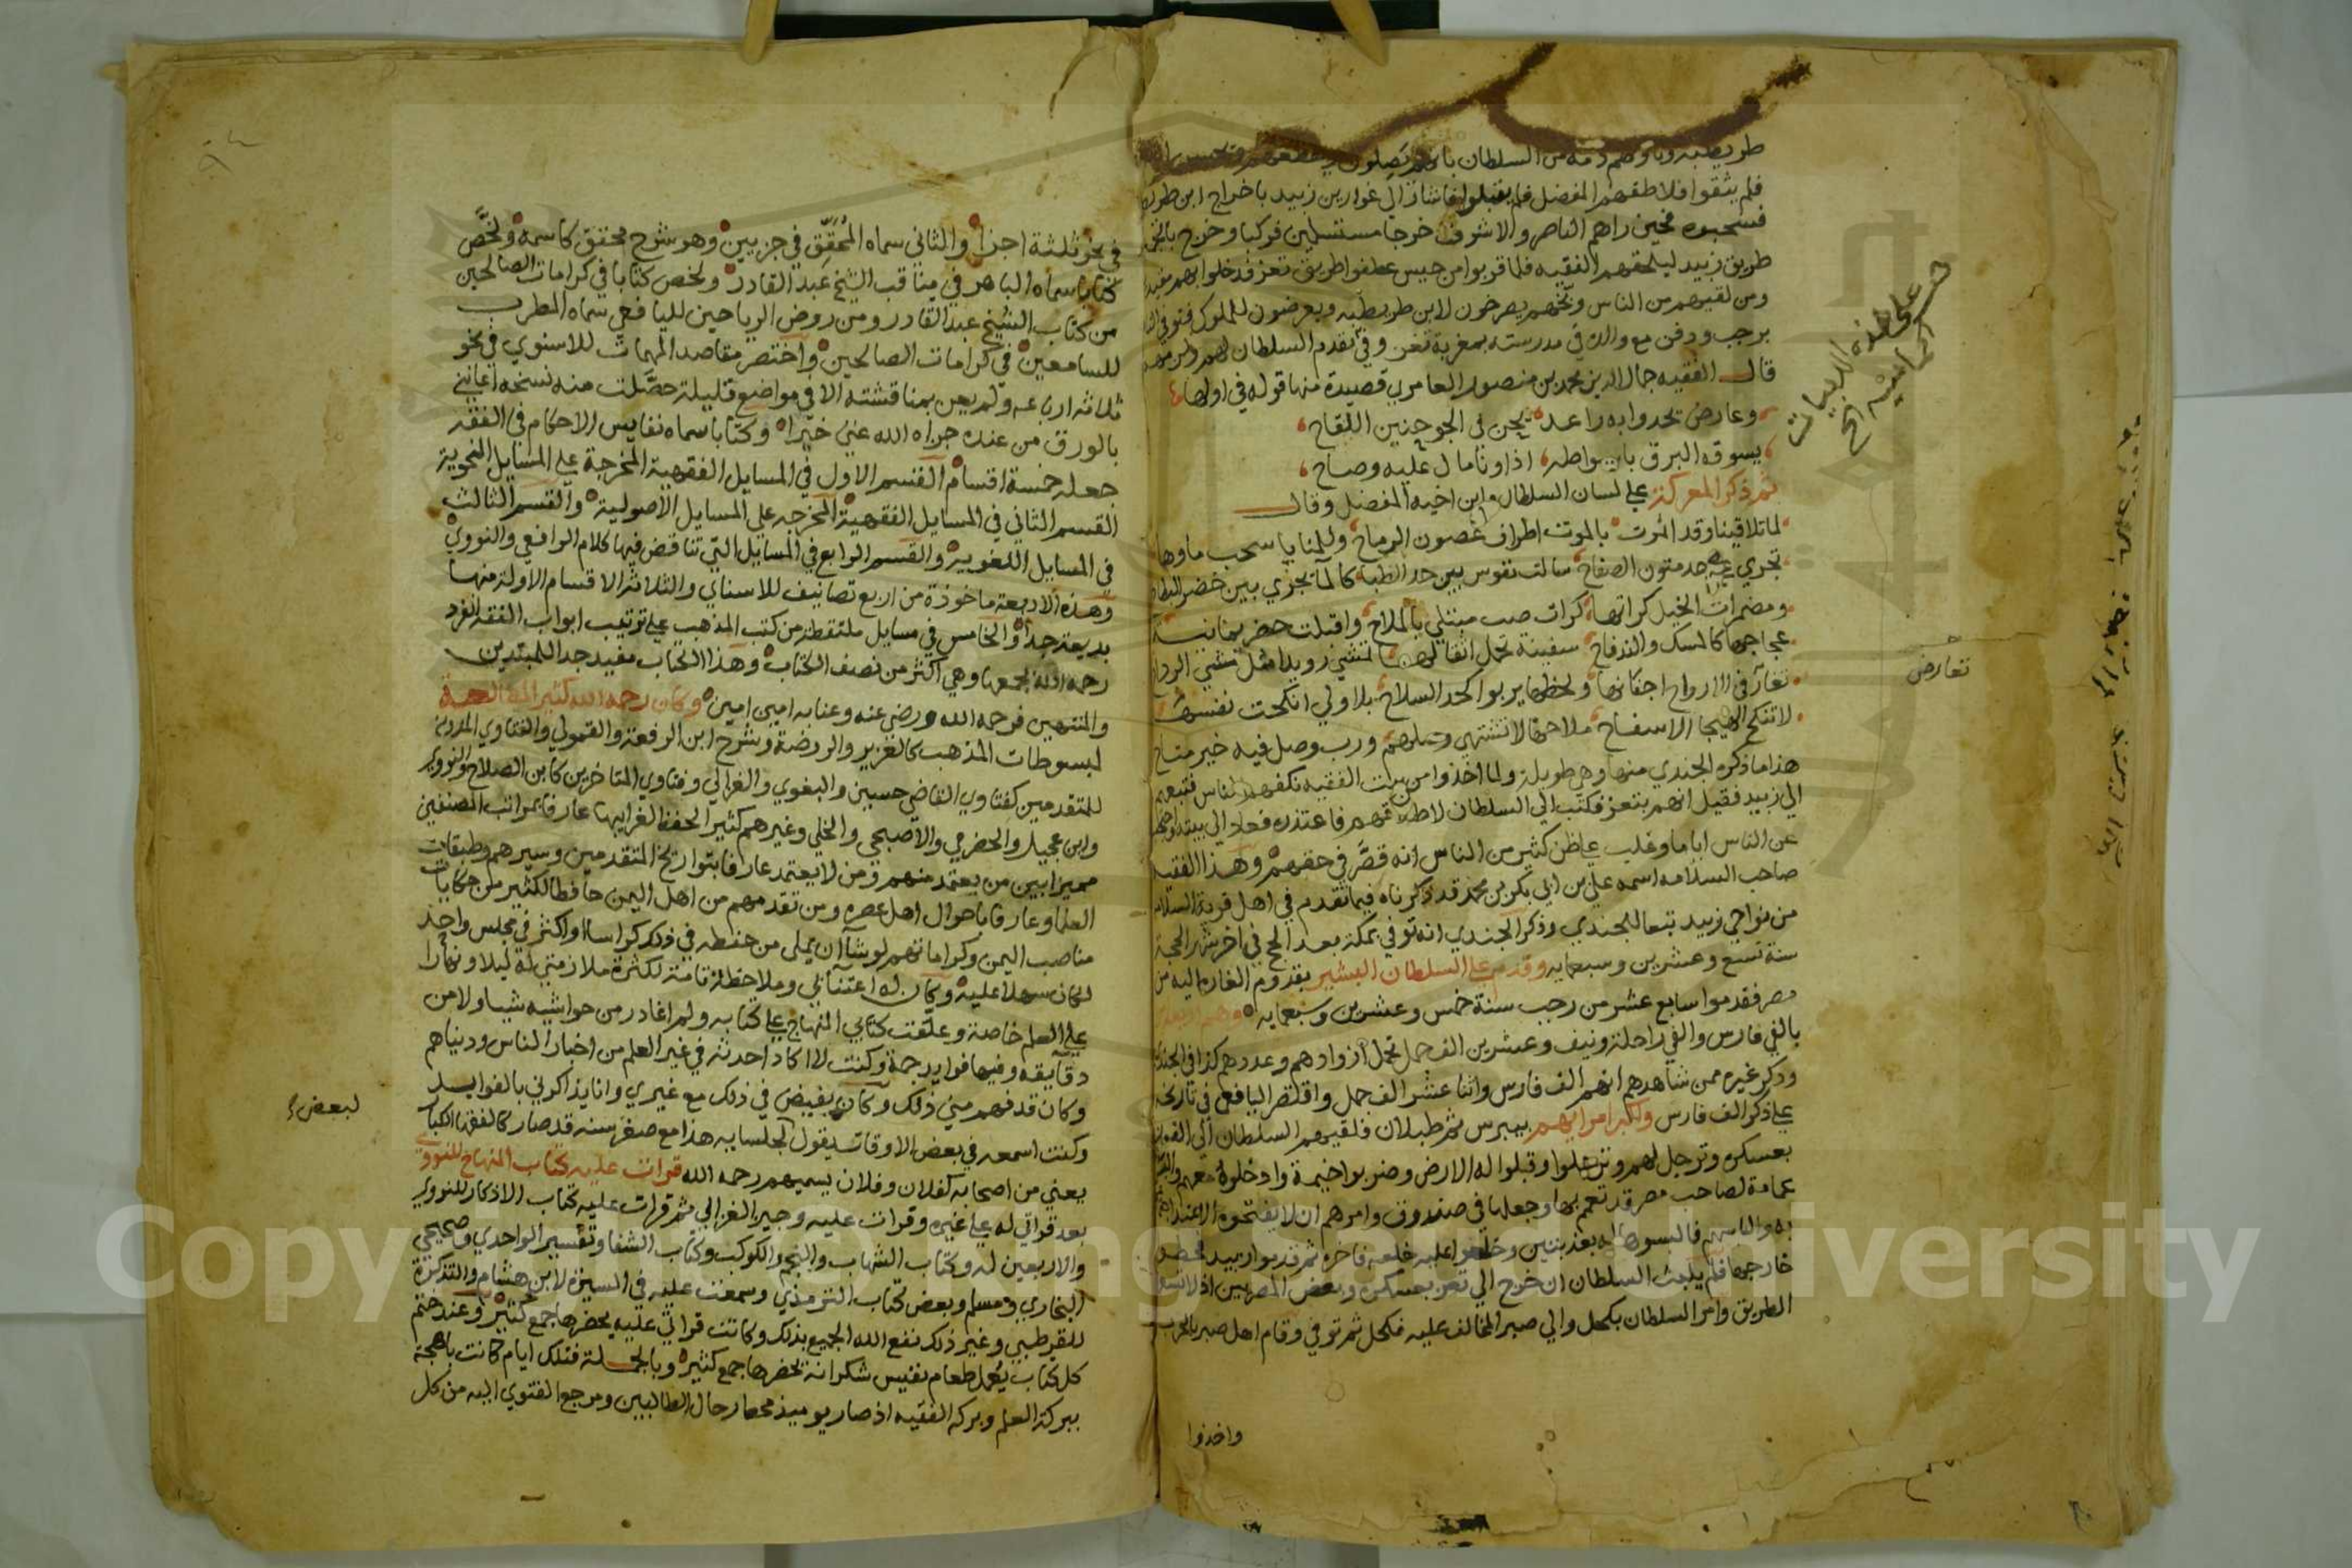 فلم يثقوا فلاطفهم المفضل فلم يقبلوا فاشار الى غوارين زبيد باخراج ابن
فسحبوه فحين راهم الناصر والاشرف خرجا مستسلمين فركبا وخرج
طريق زبيد ليلحقهم الفقيه فلما قربوا من حيس عطفوا طريق تعز فدخلوا بهم
ومن لقيهم من الناس يصرخون لابن طريطيه ويعرضون للملوك فتوفي
برجب ودفن مع والده في مدرسته بمغربة تعز وفي تقدم السلطان لهم
قال الفقيه جمال الدين محمد بن منصور العامري قصيدة منها قوله في اولها
وعارض تحدوا به راعد يحن في الجو حنين اللقاح
يسوقه البرق باسواطه اذا ونا مال عليه وصاح
ثم ذكر المعركة على لسان السلطان وابن اخيه المفضل وقال
لما تلاقينا وقد اثمرت بالموت اطراف غصون الرماح وللمنايا سحب ماوها
تجري على حد متون الصفاح سالت نفوس بين حد الظبا كالما تجري بين خضر البطاح
ومضمرات الخيل كراتها كرات صب مبتلي بالملاح واقبلت
عجاجها كالمسك والند فاح سفينة تحمل اثقالها تمشي رويدا مثل مشي
تغار في الارواح اجفانها ولحظها يربوا كحد السلاح بلا ولي انكحت نفسها
لا تنكح الهيجا الا سفاح ملاحها لا تشتهي وصلهم ورب وصل فيه خير متاح
هذا ما ذكره الجندي منها وهي طويلة ولما اخذوا من بيت الفقيه تكفهم الناس فتبعهم
الى زبيد فقيل انهم بتعز فكتب الى السلطان فاعتذره فعاد الى بيته
عن الناس اياما وغلب على ظن كثير من الناس انه قصر في حقهم وهذا الفقيه
صاحب السلامه اسمه علي بن ابي بكر بن محمد قد ذكرناه فيما تقدم في اهل قرية السلامه
من نواحي زبيد تبعا للجندي وذكر الجندي انه توفي بمكة بعد الحج في اخر شهر الحجة
سنة تسع وعشرين وسبعمايه وقدم على السلطان البشير بقدوم الغارة اليه من
مصر فقدموا سابع عشر من رجب سنة خمس وعشرين وسبعمايه
بالفي فارس والفي راحلة ونيف وعشرين الف جمل تحمل ازوادهم وعددهم كذا في الجندي
وذكر غيره ممن شاهدهم انهم الف فارس واثنا عشر الف جمل واقتصر اليافعي في تاريخه
على ذكر الف فارس ولكبر امرايهم بيبرس ثم طيلان فلقيهم السلطان الى القوز
بعسكره وترجل لهم وترجلوا وقبلوا له الارض وضربوا خيمة وادخلوه معهم
عمامة لصاحب مصر قد تعمم بها وجعلها في صندوق وامرهم ان لا يفتحوه الا عند
خارجها فلم يلبث السلطان ان خرج الى تعز بعسكره وبعض المصريين
الطريق وامر السلطان بكحل والي صبر المخالف عليه فكحل ثم توفي وقام اهل صبر
واخذوا
على هذه الابيات
تعارض
في نحو ثلثة اجزا والثاني سماه المحقق في جزيين وهو شرح محقق كاسمه ولخص
كتابا سماه الباهر في مناقب الشيخ عبد القادر ولخص كتابا في كرامات الصالحين
من كتاب الشيخ عبد القادر ومن روض الرياحين لليافعي سماه المطرب
للسامعين في كرامات الصالحين واختصر مقاصد المهمات للاسنوي في نحو
ثلاثة ارباعه ولم يعن بمناقشته الا في مواضع قليلة حصلت منه نسخه اعانني
بالورق من عنده جزاه الله عني خيرا وكتابا سماه نفايس الاحكام في الفقه
جعله خمسة اقسام القسم الاول في المسايل الفقهية المخرجة على المسايل النحوية
القسم الثاني في المسايل الفقهية المخرجه على المسايل الاصولية والقسم الثالث
في المسايل اللغوية والقسم الرابع في المسايل التي تناقض فيها كلام الرافعي والنووي
وهذه الاربعة ماخوذة من اربع تصانيف للاسناي والثلاثة الاقسام الاولة منها
بديعة جدا والخامس في مسايل ملتقطة من كتب المذهب على ترتيب ابواب الفقه انفرد
رحمه الله بجمعها وهي اكثر من نصف الكتاب وهذا الكتاب مفيد جدا للمبتدين
والمنتهين فرحمه الله ورضي عنه وعنا به امين امين وكان رحمه الله كثير المطالعة
لبسوطات المذهب كالعزيز والروضة وشرح ابن الرفعة والقمولي والفتاوي
للمتقدمين كفتاوي القاضي حسين والبغوي والغزالي وفتاوي المتاخرين كابن الصلاح والنووي
وابن عجيل والحضرمي والاصبحي والخلي وغيرهم كثير الحفظ لغرايبها عارفا بمراتب المصنفين
مميزا بين من يعتمد منهم ومن لا يعتمد عارفا بتواريخ المتقدمين وسيرهم وطبقات
العلما وعارفا باحوال اهل عصره ومن تقدمهم من اهل اليمن حافظا لكثير من حكايات
مناصب اليمن وكراماتهم لو شا ان يملي من حفظه في ذلك كراسا او اكثر في مجلس واحد
لكان سهلا عليه وكان له اعتنا بي وملاحظة تامة لكثرة ملازمتي له ليلا ونهارا
على العلم خاصة وعلقت كتابي المنهاج على كتابه ولم اغادر من حواشيه شيا ولا من
دقايقه وفيها فوايد جمة وكنت لا اكاد احدثه في غير العلم من اخبار الناس ودنياهم
وكان قد فهم مني ذلك وكان يفيض في ذلك مع غيري وانا يذاكرني بالفوايد
وكنت اسمعه في بعض الاوقات يقول لجلسايه هذا مع صغر سنه قد صار كالفقها الكبار
يعني من اصحابه كفلان وفلان يسميهم رحمه الله قرات عليه كتاب المنهاج للنووي
بعد قراتي له على غيره وقرات عليه وجيز الغزالي ثم قرات عليه كتاب الاذكار للنووي
والاربعين له وكتاب الشهاب والنجم والكوكب وكتاب الشفا وتفسير الواحدي وصحيحي
البخاري ومسلم وبعض كتاب الترمذي وسمعت عليه في السيرة لابن هشام والتذكرة
للقرطبي وغير ذلك نفع الله الجميع بذلك وكانت قراتي عليه يحضرها جمع كثير وعند ختم
كل كتاب يعمل طعام نفيس شكرانة يحضرها جمع كثير وبالجملة فتلك ايام كانت باهجة
ببركة العلم وبركه الفقيه اذ صار يوميذ محط رحال الطالبين ومرجع الفتوي اليه من كل
لبعض
Copyright © King Saud University